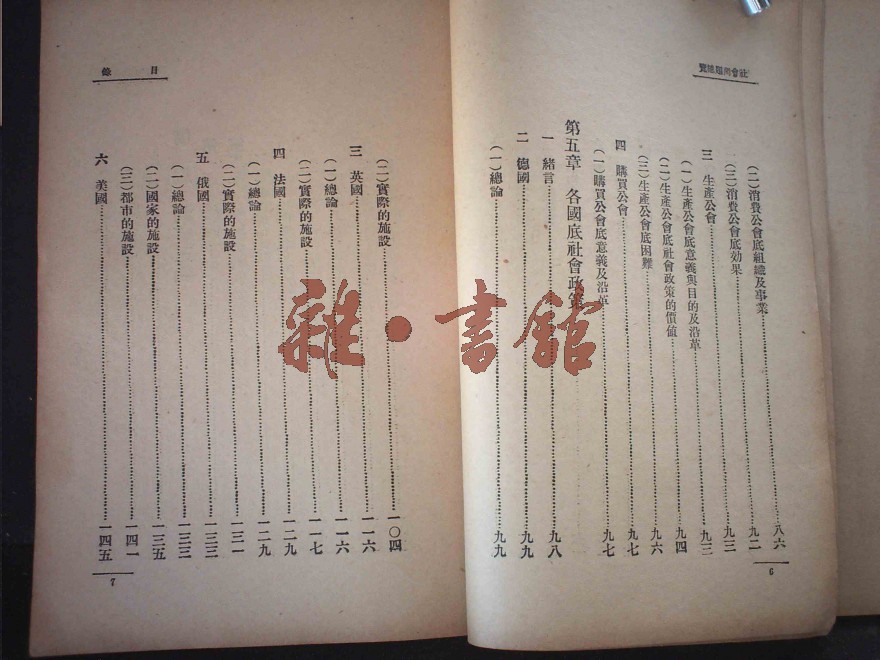 社會問題總覽
(二)消費公會底組織及事業……八六
(三)消費公會底効果……九二
三 生產公會……九三
(一)生產公會底意義與目的及沿革……九三
(二)生產公會底社會政策的價值……九四
(三)生產公會底困難……九六
四 購買公會……九七
(一)購買公會底意義及沿革……九七
第五章 各國底社會政策
一 緒言……九八
二 德國……九九
(一)總論……九九
6
目錄
(二)實際的施設……一〇四
三 英國……一一六
(一)總論……一一六
(二)實際的施設……一一七
四 法國……一二九
(一)總論……一二九
(二)實際的施設……一三一
五 俄國……一三三
(一)總論……一三三
(二)國家的施設……一三五
(三)都市的施設……一四一
六 美國……一四五
7
雜·書館